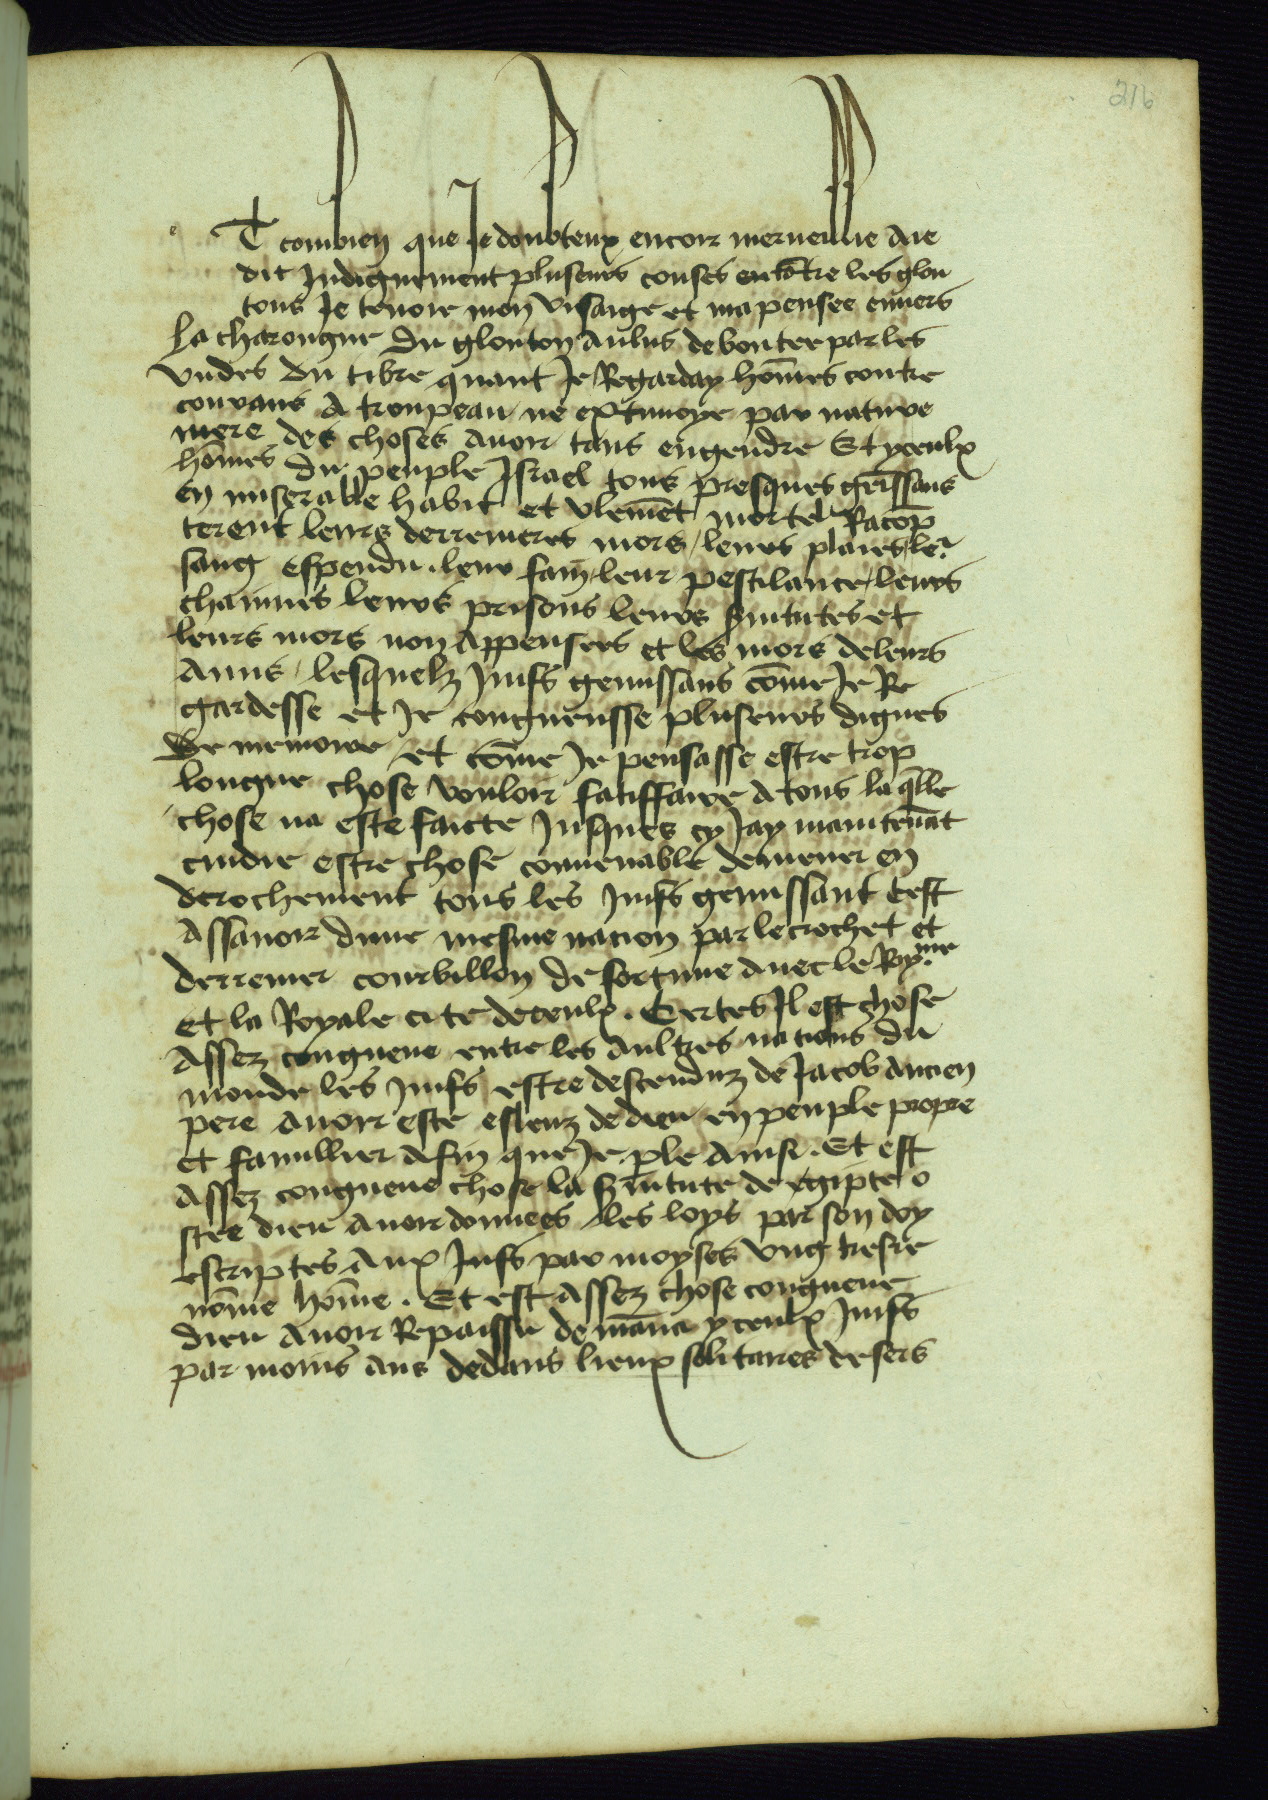 216
T combien que Je doubteux encoir merueille Aie
dit Indignement pluseurs couses encōtre les glou
tons Je tenoie mon visaige et ma pensee enuers
La charongne Du glouton Aulus deboutee par les
vndes du tibre quant Je Regarday hōmes contre
courans A troupeau ne extimoye par nature
mere des choses Auoir tans engendre Et yceulx
hōmes du peuple Israel tous presques gemissans
en miserable habit et vlemēt mortel Racōp
terent leurs derrenieres mors / leurs plaies / leꝛ
sang Espendu . leur fain / leur pestilance / leurs
chainnes leurs prisons leurs fuitutes et
leurs mors non Appensees et les mors de leurs
Amis / lesquelz Juifs gemissans cōme Je Re
gardesse et Je congneusse pluseurs dignes
De memoire / et cōme Je pensasse estre trop
longue chose vouloir satiffaire A tous la q̄lle
chose na este faicte Jusques cy Jay maintenāt
cuidie estre chose conuenable demener en
derochement tous les Juifs gemissant Cest
Assauoir dune mesme nacion par le crochet et
derrenier tourbillon de fortune Auec le Roy.me
et la Royale cite deceulx . Certes Il est chose
Assez congneue entre les Aultres nacions du
monde les Juifs estre descenduz de Jacob Ancien
pere Auoir este esleuz de dieu en peuple propre
et famillier Afin que Je ple Ainsi . Et est
Assez congneue chose la s̄uitute de egipte o
stee dieu Auoir donnees les loys par son doy
escriptes Aux Juifs par moyses vng tresre
nōme hōme . Et est Assez chose congneue
dieu Auoir Repaissu de māna yceulx Juifs
par moins ans dedans lieux solitaires desers